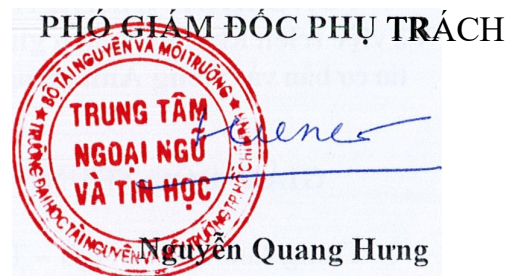 PHÓ GIÁM ĐỐC PHỤ TRÁCH
BỘ TÀI NGUYÊN VÀ MÔI TRƯỜNG
TRUNG TÂM
NGOẠI NGỮ
VÀ TIN HỌC
TRƯỜNG ĐẠI HỌC TÀI NGUYÊN VÀ MÔI TRƯỜNG TP. HỒ CHÍ MINH
Nguyễn Quang Hưng